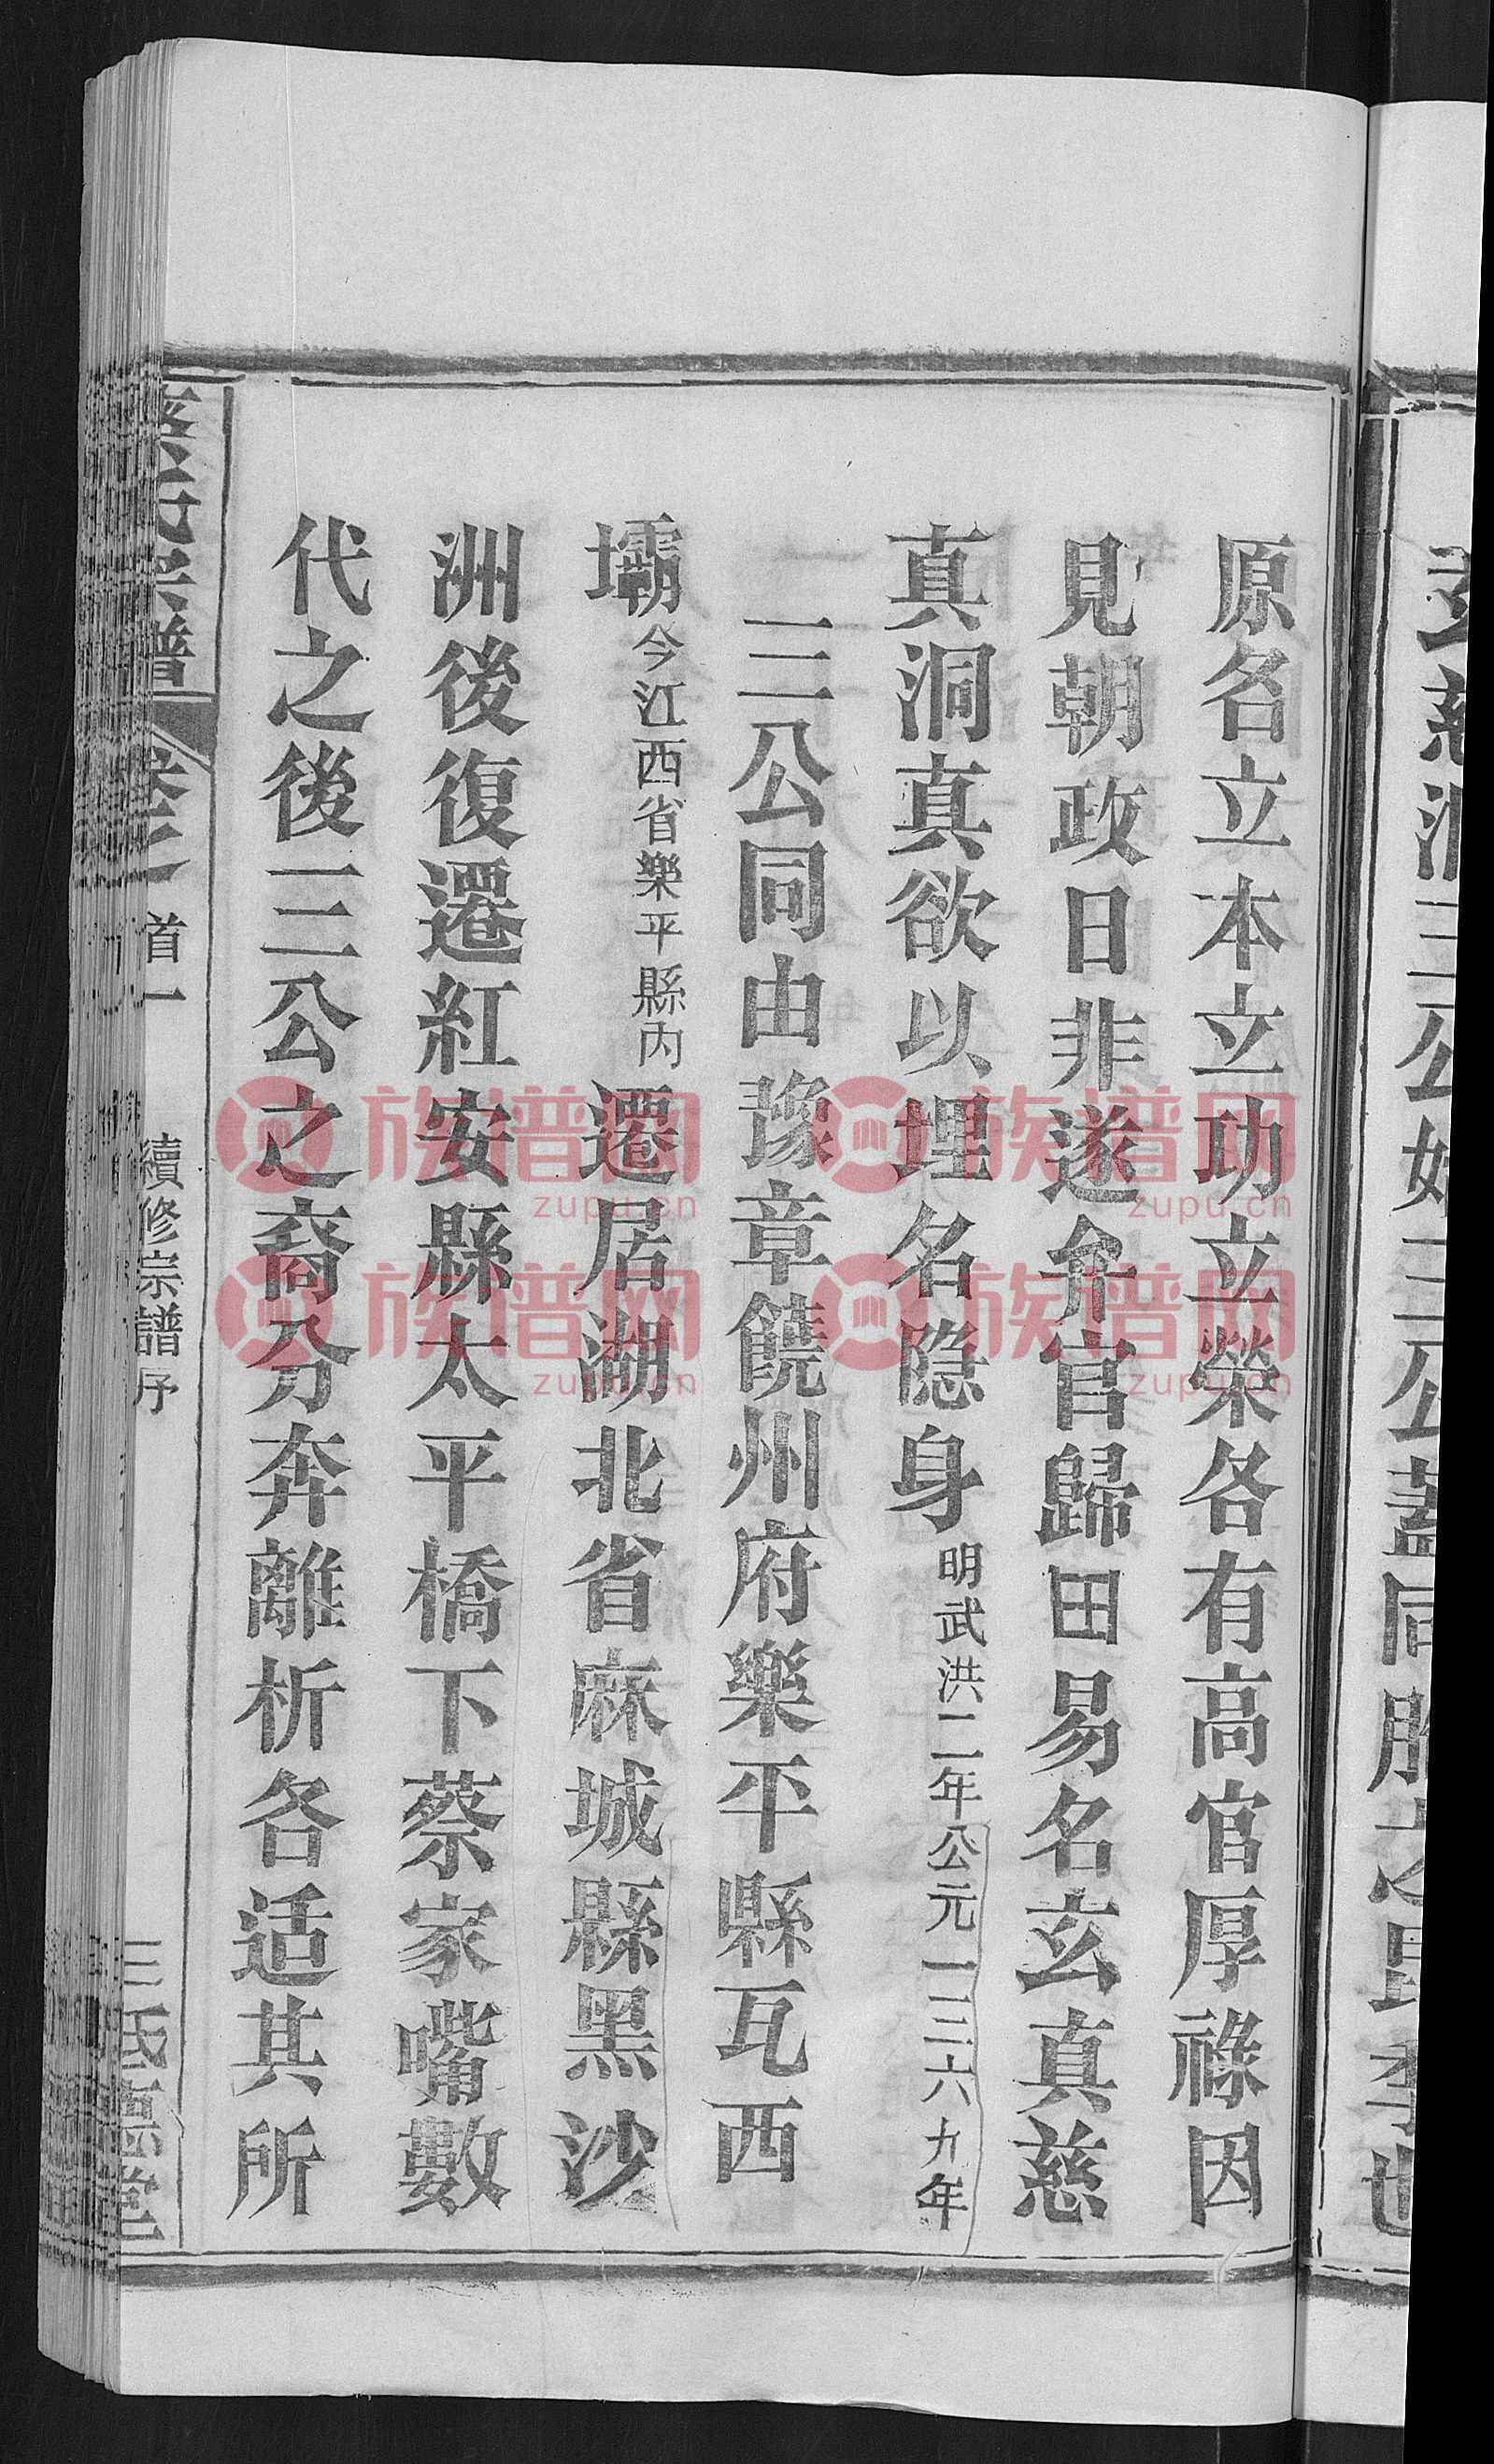 玄慈洞三公始三公蓋同胞之昆季也
原名立本立功立榮各有高官厚祿因
見朝政日非遂弃官歸田易名玄真慈
真洞真欲以埋名隐身明武洪二年公元一三六九年
三公同由豫章饒州府樂平縣瓦西
壩今江西省樂平縣内遷居湖北省麻城縣黑沙
洲後復遷紅安縣太平橋下蔡家嘴數
代之後三公之裔分奔離析各适其所
蔡氏宗譜 卷之首一 續修宗譜序
族谱网 zupu.cn
族谱网 zupu.cn
族谱网 zupu.cn
族谱网 zupu.cn